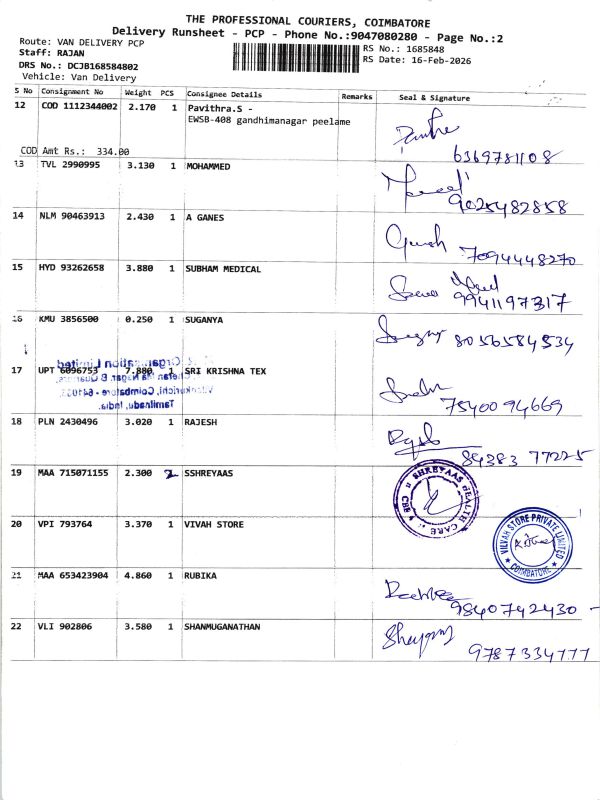 THE PROFESSIONAL COURIERS, COIMBATORE
Delivery Runsheet - PCP - Phone No.:9047080280 - Page No.:2
Route: VAN DELIVERY PCP
Staff: RAJAN
DRS No.: DCJB168584802
Vehicle: Van Delivery
RS No.: 1685848
RS Date: 16-Feb-2026
S No Consignment No Weight PCS Consignee Details Remarks Seal & Signature
12 COD 1112344002 2.170 1 Pavithra.S -
EWSB-408 gandhimanagar peelame
COD Amt Rs.: 334.00
6369781108
13 TVL 2990995 3.130 1 MOHAMMED
9025482858
14 NLM 90463913 2.430 1 A GANES
7094448270
15 HYD 93262658 3.880 1 SUBHAM MEDICAL
9941197317
16 KMU 3856500 0.250 1 SUGANYA
8056584534
17 UPT 6096753 7.880 1 SRI KRISHNA TEX
Organisation Limited
Coimbatore - 641035
Tamilnadu, India.
7540094669
18 PLN 2430496 3.020 1 RAJESH
84383 77225
19 MAA 715071155 2.300 2 SSHREYAAS
SHREYAAS HEALTH CARE
CBE
20 VPI 793764 3.370 1 VIVAH STORE
VILVAH STORE PRIVATE LIMITED
COIMBATORE
21 MAA 653423904 4.860 1 RUBIKA
9840742430
22 VLI 902806 3.580 1 SHANMUGANATHAN
9787334777